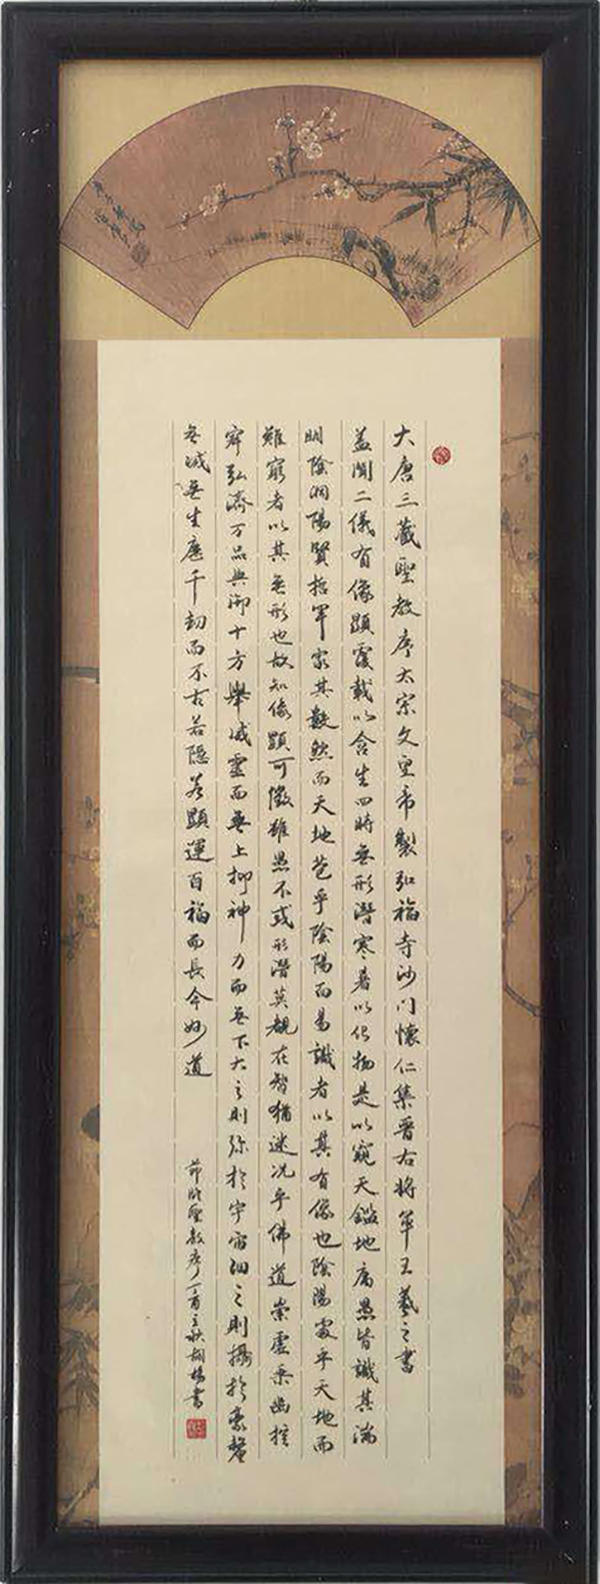 大唐三藏聖教序太宗文皇帝製弘福寺沙門懷仁集晉右將軍王羲之書
蓋聞二儀有像顯覆載以含生四時無形潛寒暑以化物是以窺天鑑地庸愚皆識其端
明陰洞陽賢哲罕窮其數然而天地苞乎陰陽而易識者以其有像也陰陽處乎天地而
難窮者以其無形也故知像顯可徵雖愚不惑形潛莫覩在智猶迷況乎佛道崇虛乘幽控
寂弘濟万品典御十方舉威靈而無上抑神力而無下大之則弥於宇宙細之則攝於豪釐
無滅無生歷千劫而不古若隱若顯運百福而長今妙道
節臨聖教序丁酉之秋胡楊書